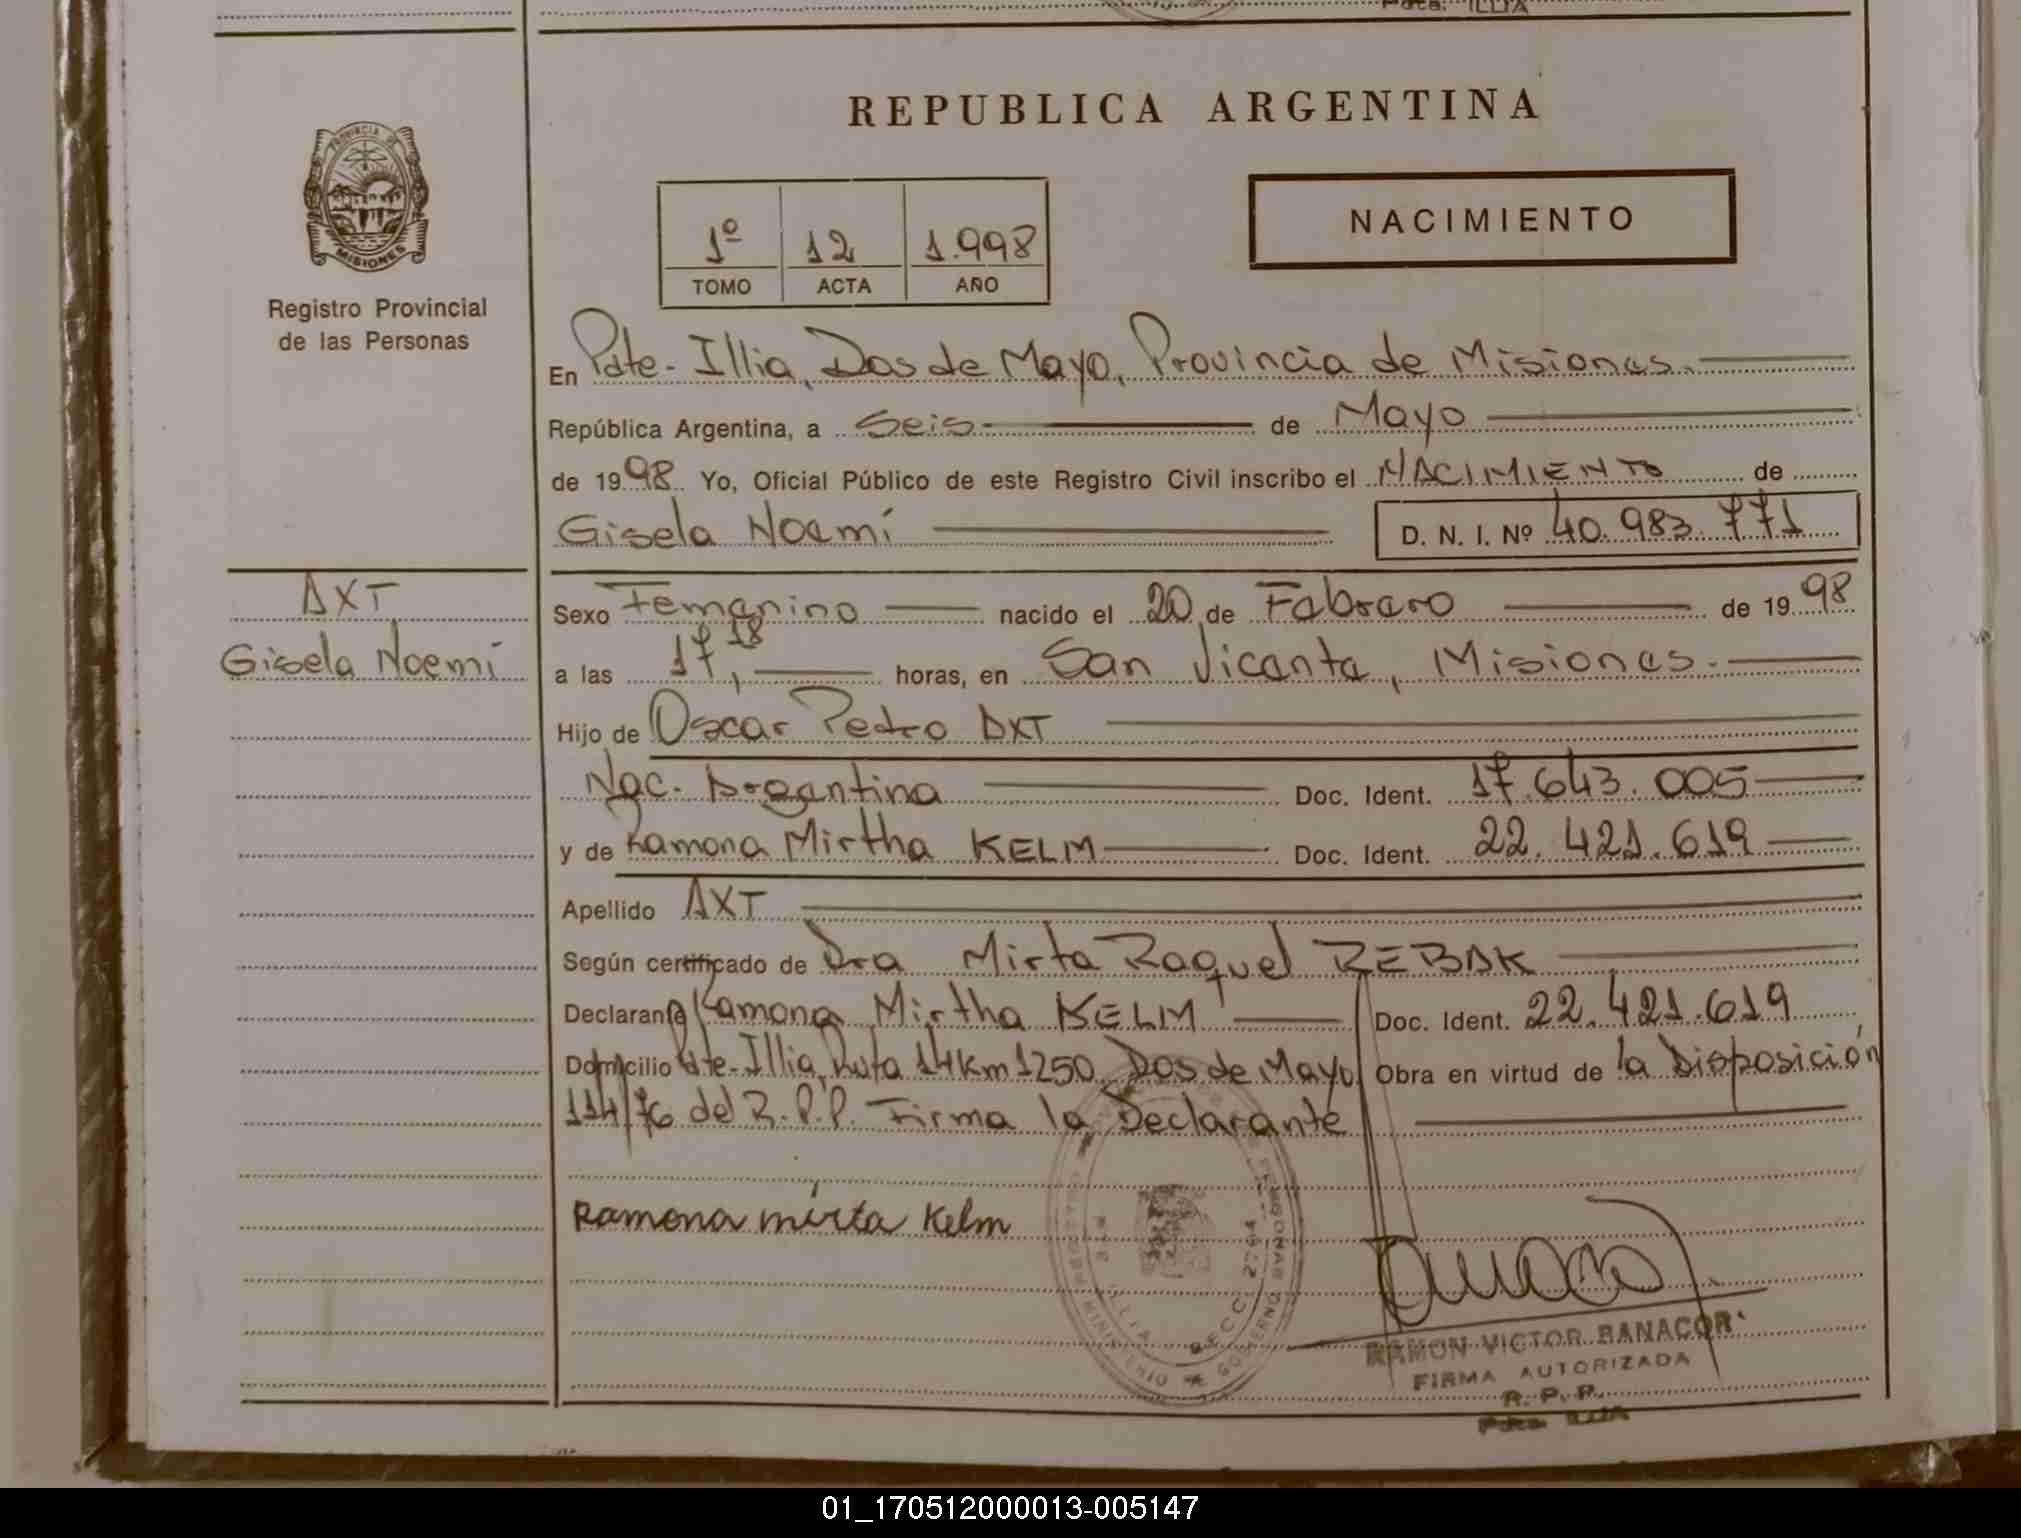 Pdte. ILLIA
REPUBLICA ARGENTINA
PROVINCIA DE
MISIONES
Registro Provincial
de las Personas
1º 12 1.998
TOMO ACTA AÑO
NACIMIENTO
En Pdte. Illia, Dos de Mayo, Provincia de Misiones.
República Argentina, a Seis de Mayo
de 1998 Yo, Oficial Público de este Registro Civil inscribo el NACIMIENTO de
Gisela Noemí D. N. I. Nº 40.983.771
AXT
Gisela Noemí
Sexo Femenino nacido el 20 de Febrero de 1998
a las 17,18 horas, en San Vicente, Misiones.
Hijo de Oscar Pedro AXT
Nac. Argentina Doc. Ident. 17.643.005
y de Ramona Mirtha KELM Doc. Ident. 22.421.619
Apellido AXT
Según certificado de Dra Mirta Raquel REBAK
Declarante Ramona Mirtha KELM Doc. Ident. 22.421.619
Domicilio Pdte. Illia, Ruta 14 Km 1250, Dos de Mayo Obra en virtud de la Disposición
114/76 del R.P.P. Firma la Declarante
Ramona mirta Kelm
RAMON VICTOR BANACOR
FIRMA AUTORIZADA
R. P. P.
Pdte. ILLIA
01_170512000013-005147